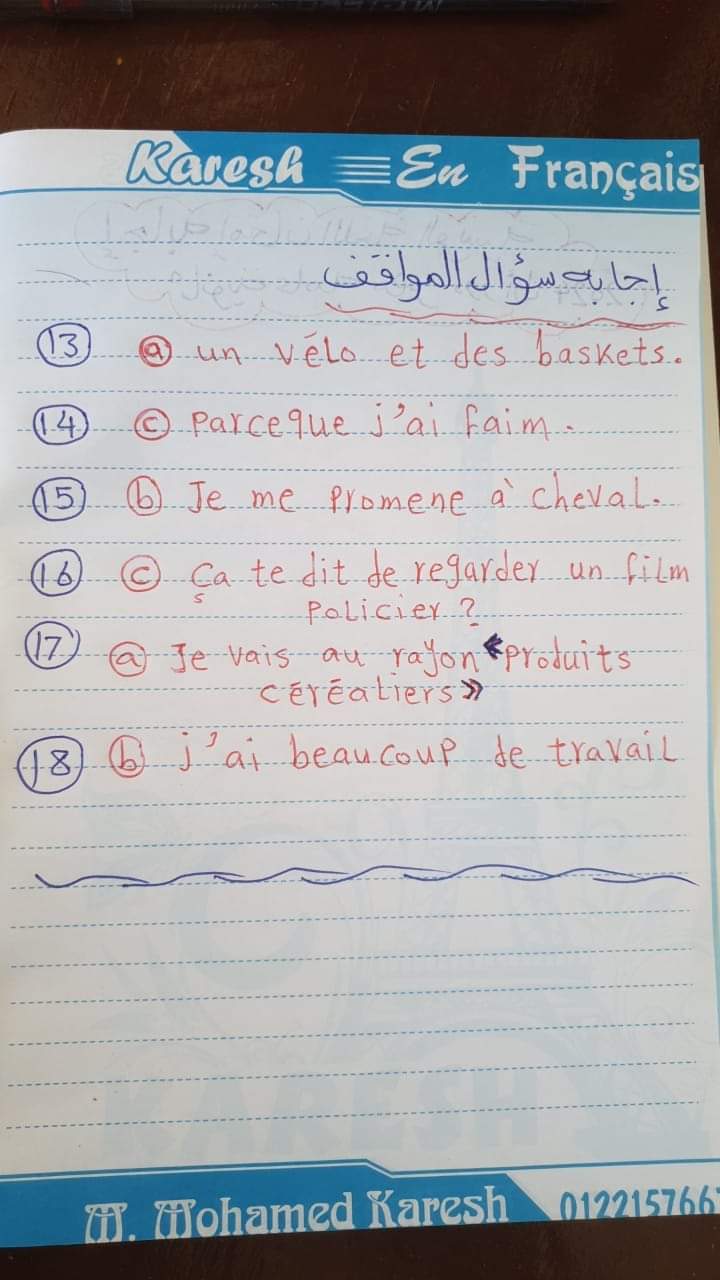 Karesh En Français
إجابه سؤال المواقف
13 a un vélo et des baskets.
14 c Parceque j'ai faim.
15 b Je me promene à cheval.
16 c Ça te dit de regarder un film
policier ?
17 a Je vais au rayon «produits
céréatiers»
18 b j'ai beaucoup de travail
M. Mohamed Karesh 0122157667